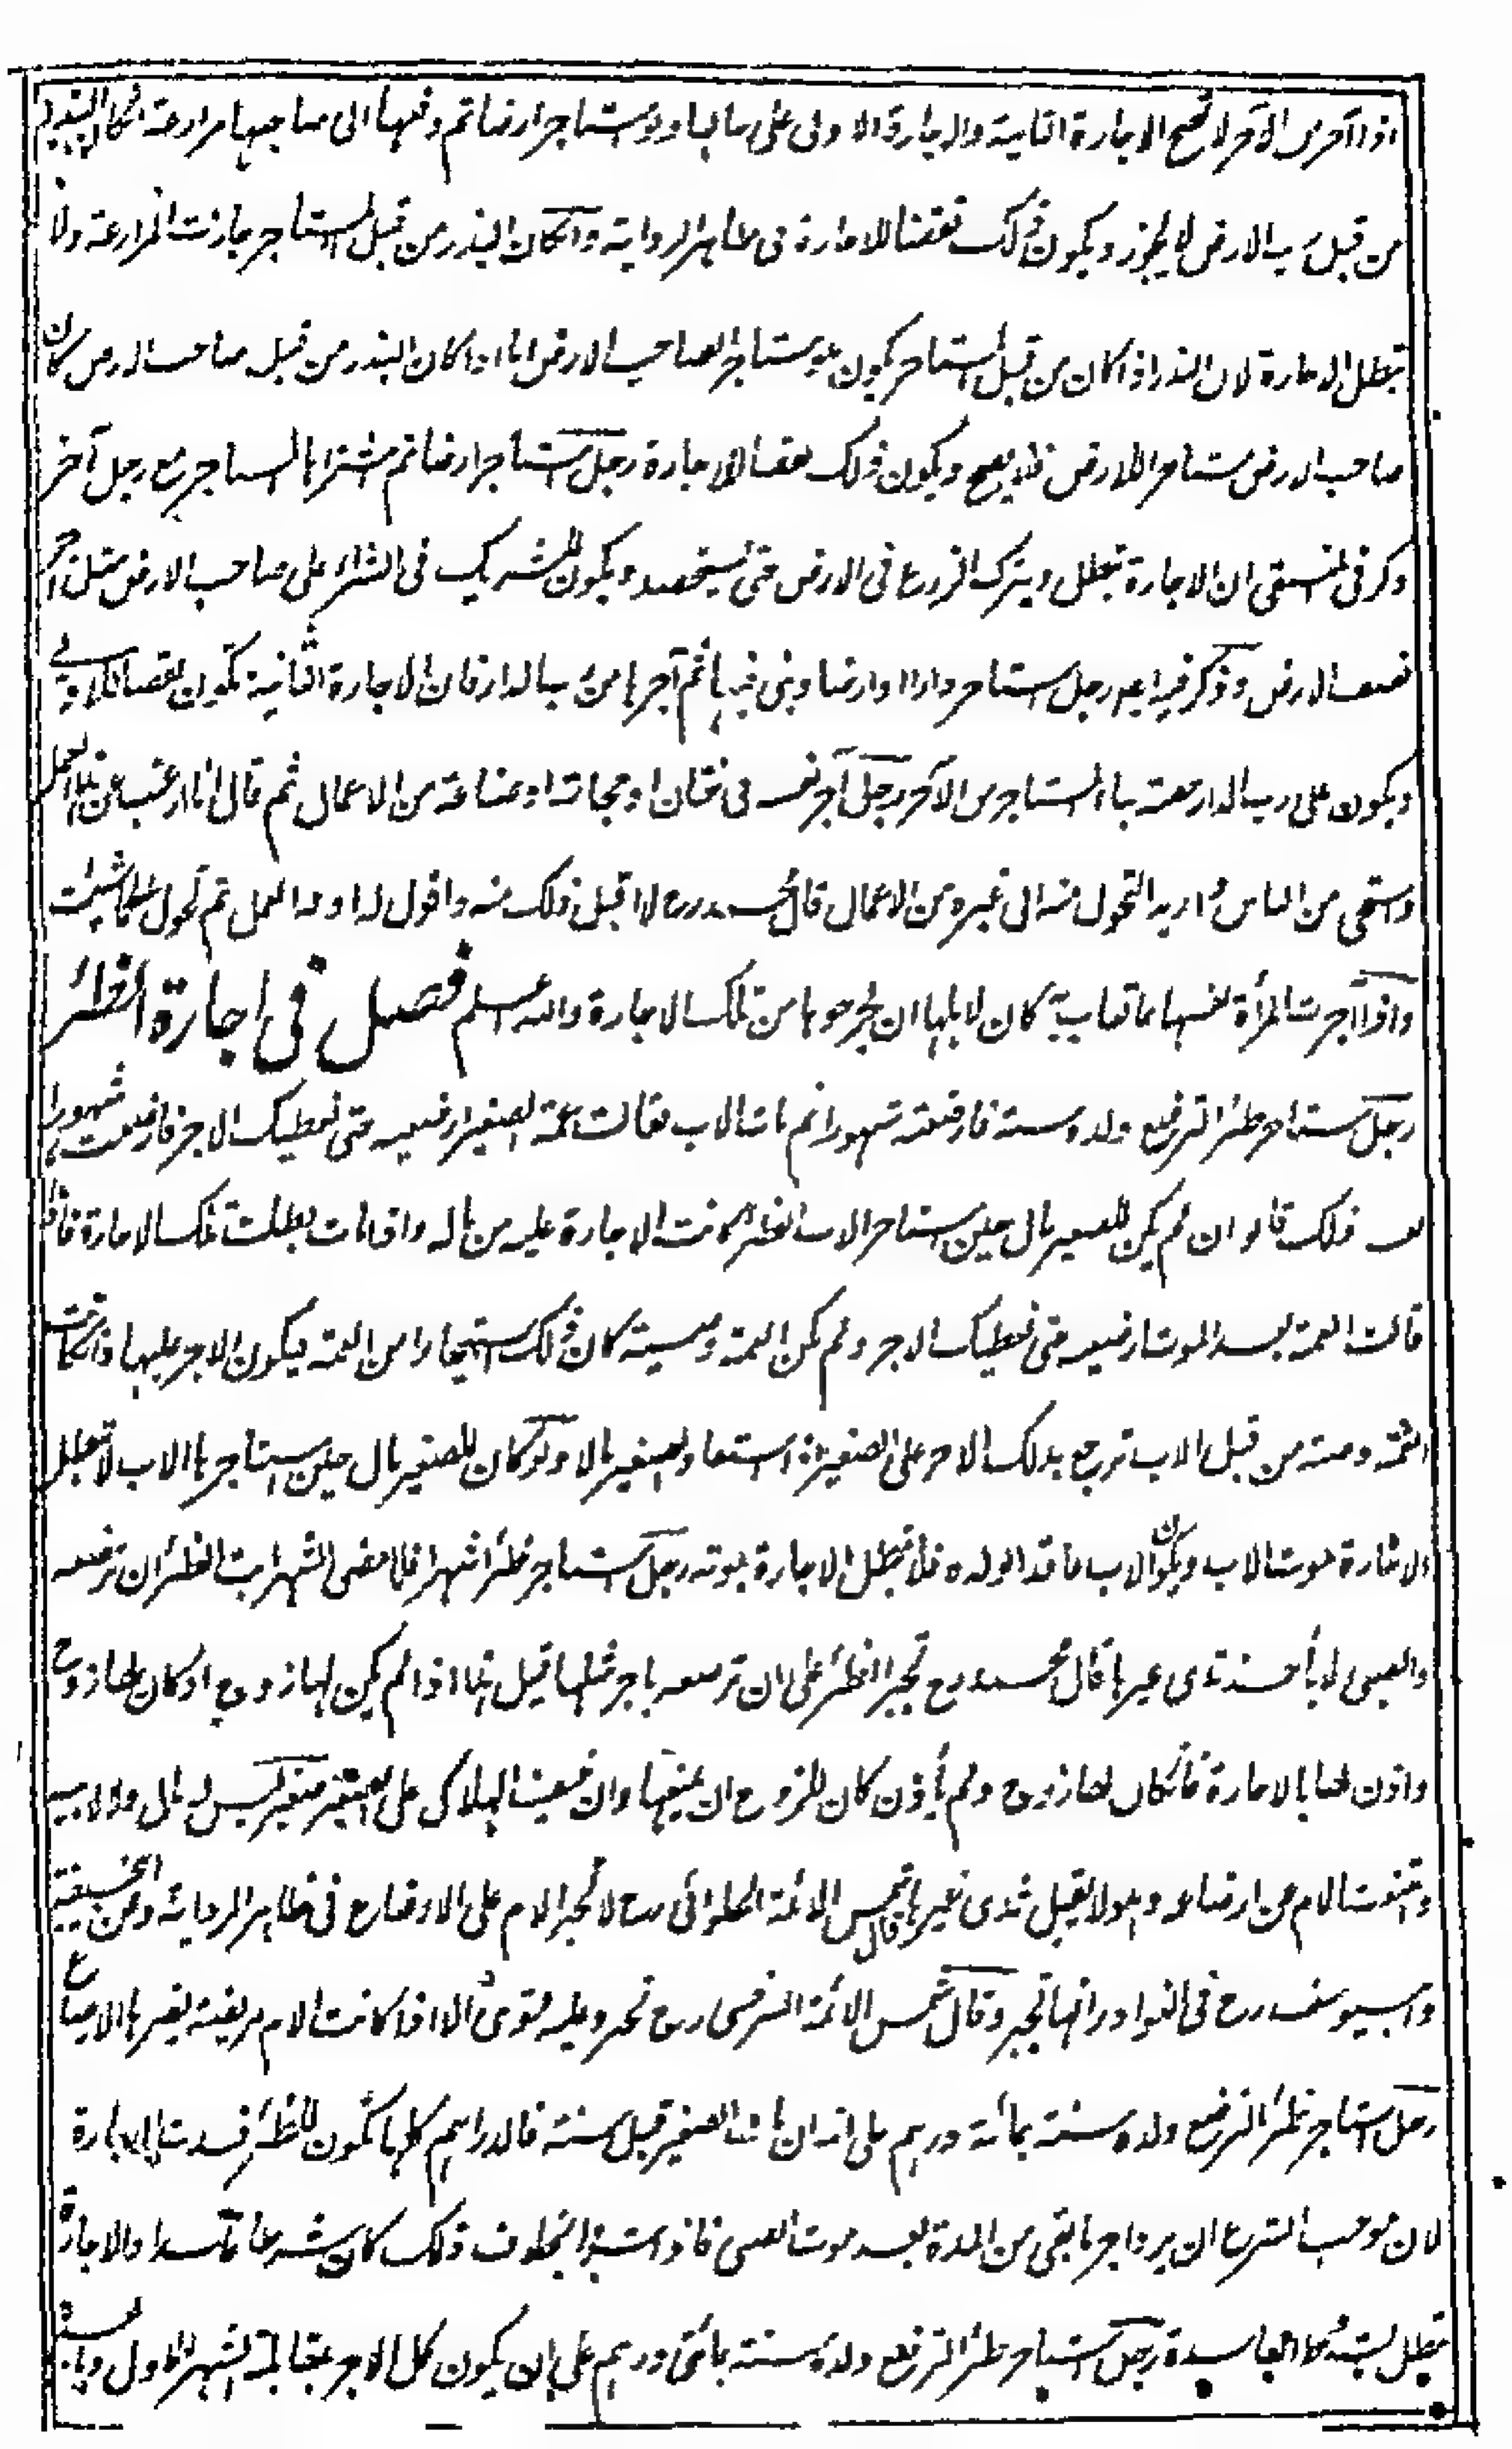 اذا آجر من الآجر لا تصح الاجارة الثانية والاجارة الاولى على حالها ولو استاجر ارضا ثم دفعها الى صاحبها مزارعة انكان البذر
من قبل رب الارض لا يجوز ويكون ذلك نقضا للاجارة فى ظاهر الرواية وانكان البذر من قبل المستاجر جازت المزارعة ولا
تبطل الاجارة لان البذر اذا كان من قبل المستاجر يكون هو مستاجرا لصاحب الارض اما اذا كان البذر من قبل صاحب الارض كان
صاحب الارض مستاجرا للارض فلا يصح ويكون ذلك نقضا للاجارة رجل استاجر ارضا ثم اشتراها المستاجر مع رجل آخر
ذكر فى المنتقى ان الاجارة تبطل ويترك الزرع فى الارض حتى يستحصد ويكون للشريك فى الشراء على صاحب الارض مثل اجر
نصف الارض وذكر فيه ايضا رجل استاجر دارا او ارضا وبنى فيها ثم آجرها من رب الدار فان الاجارة الثانية تكون نقضا للاولى
ويكون على رب الدار حصة بناء المستاجر من الآجر رجل آجر نفسه فى ختان او حجامة او صناعة من الاعمال ثم قال انا ارغب عن هذا العمل
واستحى من الناس واريد التحول منه الى غيره من الاعمال قال محمد رح لا اقبل ذلك منه واقول له اوف العمل ثم تحول الى ما شئت
واذا آجرت المرأة نفسها بما تعاب به كان لاهلها ان يخرجوها من تلك الاجارة والله اعلم فصل فى اجارة الظئر
رجل استاجر ظئرا لترضع ولده سنة فارضعته شهورا ثم مات الاب فقالت عمة الصغير ارضعيه حتى نعطيك الاجر فارضعت شهورا
بعد ذلك قالوا ان لم يكن للصغير مال حين استاجر الاب الظئر كانت الاجارة عليه من ماله واذا مات بطلت تلك الاجارة فاذا
قالت العمة بعد الموت ارضعيه حتى نعطيك الاجر ولم تكن العمة وصية كان ذلك استيجارا من العمة فيكون الاجر عليها واذا كانت
العمة وصية من قبل الاب ترجع بذلك الاجر على الصغير اذا استفاد الصغير مالا ولو كان للصغير مال حين استاجرها الاب لا تبطل
الاجارة بموت الاب ويكون الاب عاقدا لولده فلا تبطل الاجارة بموته رجل استاجر ظئرا شهرا فلما مضى الشهر ابت الظئر ان ترضعه
والصبى لا يأخذ ثدى غيرها قال محمد رح تجبر الظئر على ان ترضعه باجر مثلها قيل هذا اذا لم يكن لها زوج او كان لها زوج
واذن لها بالاجارة فان كان لها زوج ولم يأذن كان للزوج ان يمنعها وان خيف الهلاك على الصغير صغير ليس له مال ولا لابيه
وامتنعت الام عن ارضاعه وهو لا يقبل ثدى غيرها قال شمس الائمة الحلوائى رح لا تجبر الام على الارضاع فى ظاهر الرواية وعن ابيحنيفة
وابيوسف رح فى النوادر انها تجبر وقال شمس الائمة السرخسى رح تجبر وعليه الفتوى الا اذا كانت الام مريضة يضرها الارضاع
رجل استاجر ظئرا لترضع ولده سنة بمائة درهم على انه ان مات الصغير قبل السنة فالدراهم كلها تكون للظئر فسدت الاجارة
لان موجب الشرع ان يرد اجر ما بقى من المدة بعد موت الصبى فاذا شرط بخلاف ذلك كان شرطا فاسدا والاجارة
تبطل بالشروط الفاسدة رجل استاجر ظئرا لترضع ولده سنة بمائة درهم على ان يكون كل الاجر بمقابلة الشهر الاول وما بعده